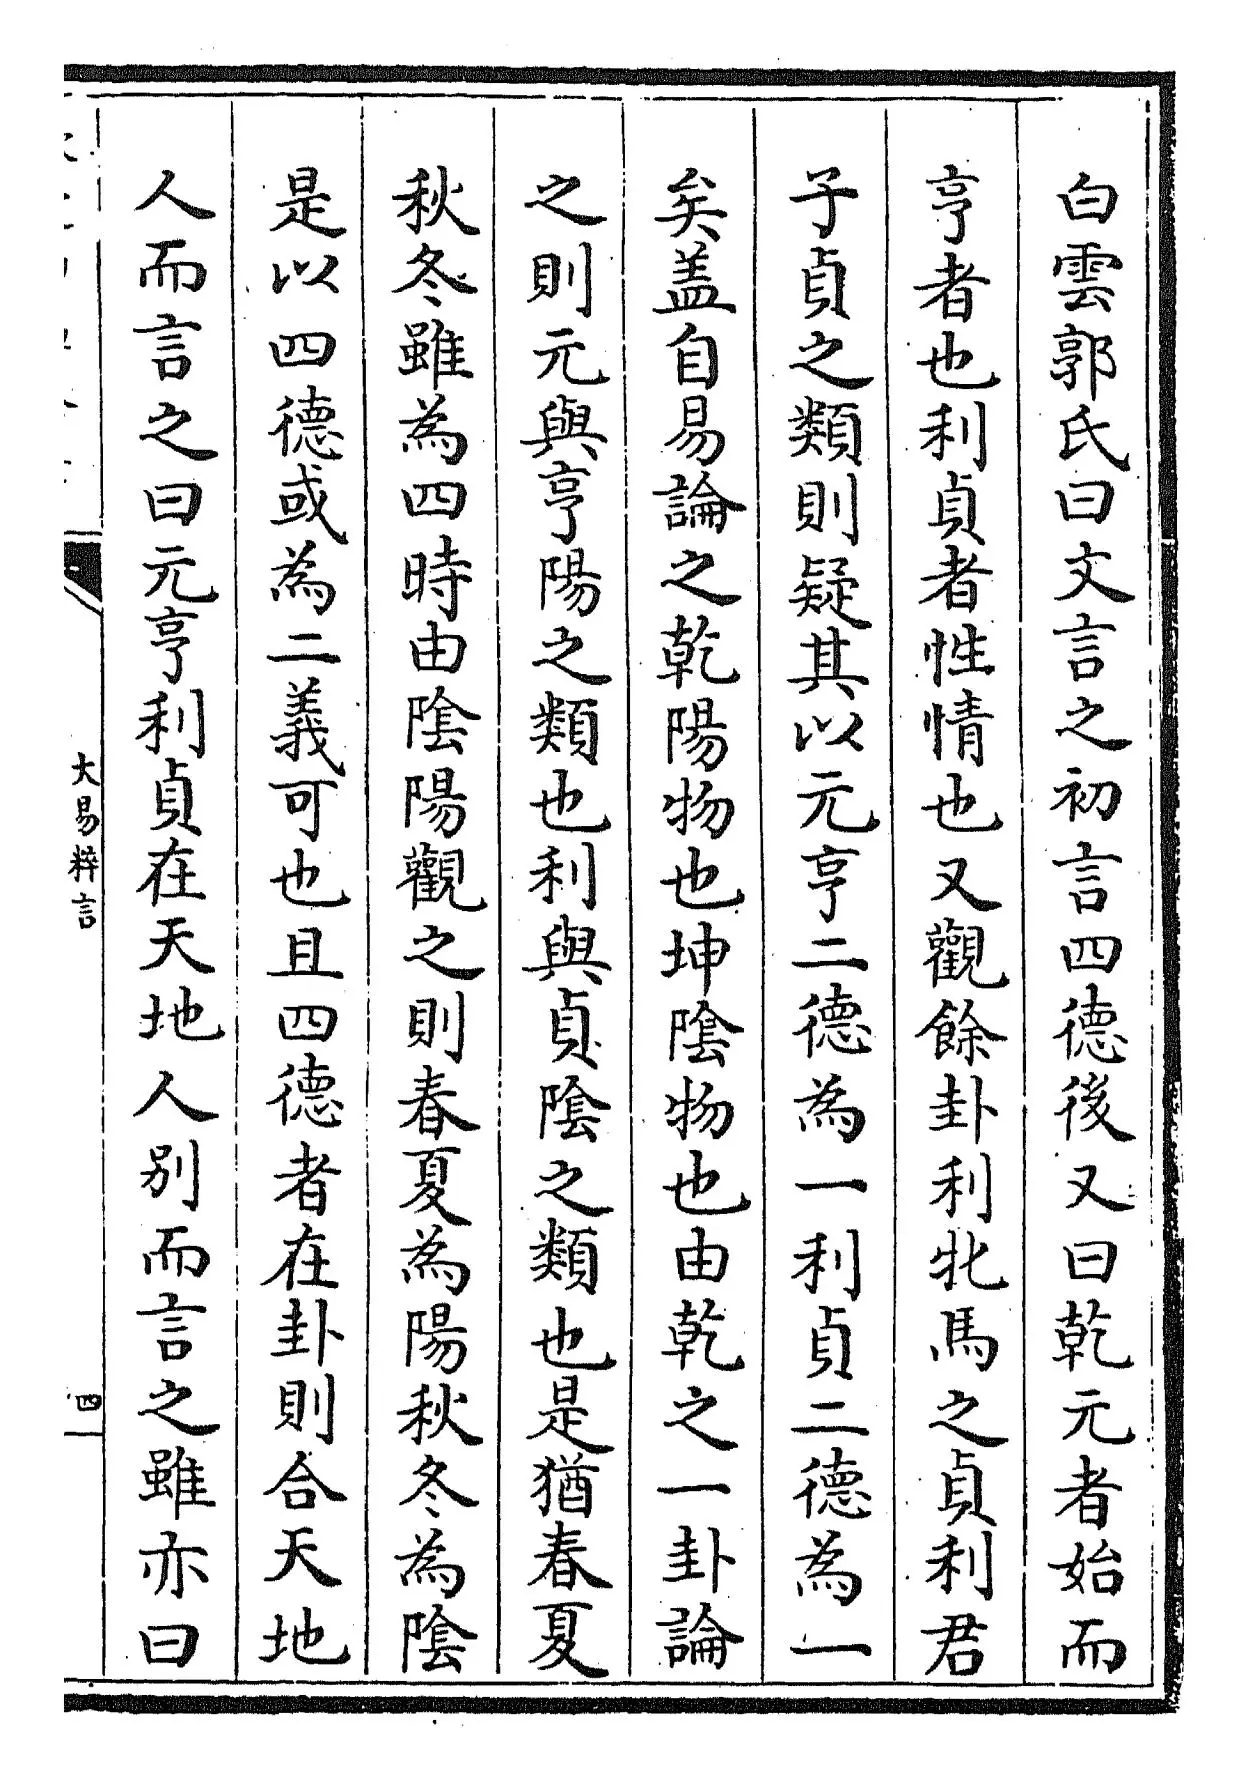 白雲郭氏曰文言之初言四德後又曰乾元者始而
亨者也利貞者性情也又觀餘卦利牝馬之貞利君
子貞之類則疑其以元亨二德為一利貞二德為一
矣盖自易論之乾陽物也坤陰物也由乾之一卦論
之則元與亨陽之類也利與貞陰之類也是猶春夏
秋冬雖為四時由陰陽觀之則春夏為陽秋冬為陰
是以四德或為二義可也且四德者在卦則合天地
人而言之曰元亨利貞在天地人别而言之雖亦曰
大易粹言
四